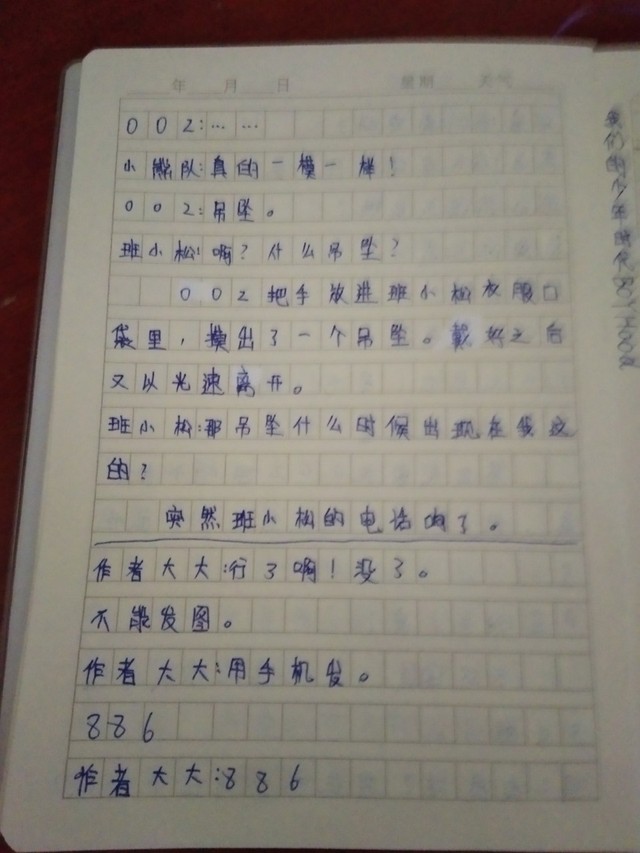 年 月 日 星期 天气
002:… …
小熊队:真的一模一样!
002:吊坠。
班小松:啊?什么吊坠?
002把手放进班小松衣服口
袋里,摸出了一个吊坠。戴好之后
又以光速离开。
班小松:那吊坠什么时候出现在我这
的?
突然班小松的电话响了。
作者大大:行了啊!没了。
不能发图。
作者大大:用手机发。
886
作者大大:886
我们的少年时代